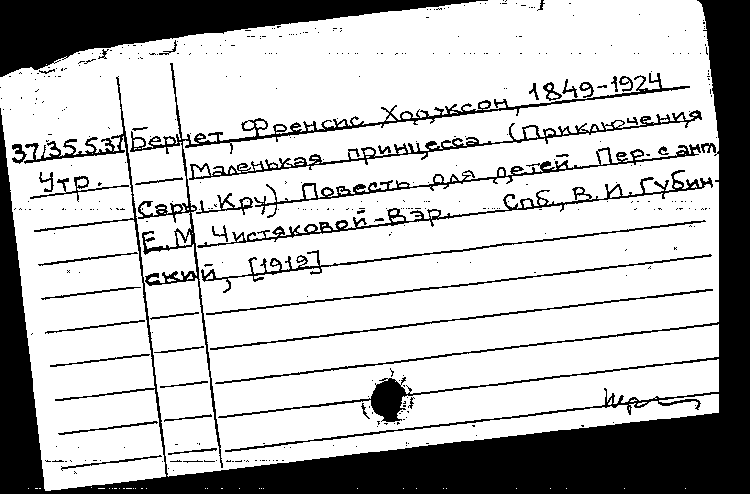 37/35.5.37 Бернет, Френсис Ходжксон, 1849-1924
Утр. Маленькая принцесса. (Приключения
Сары Кру). Повесть для детей. Пер. с англ.
Е. М. Чистяковой-Вэр. Спб., В. И. Губин-
ский, [1912]